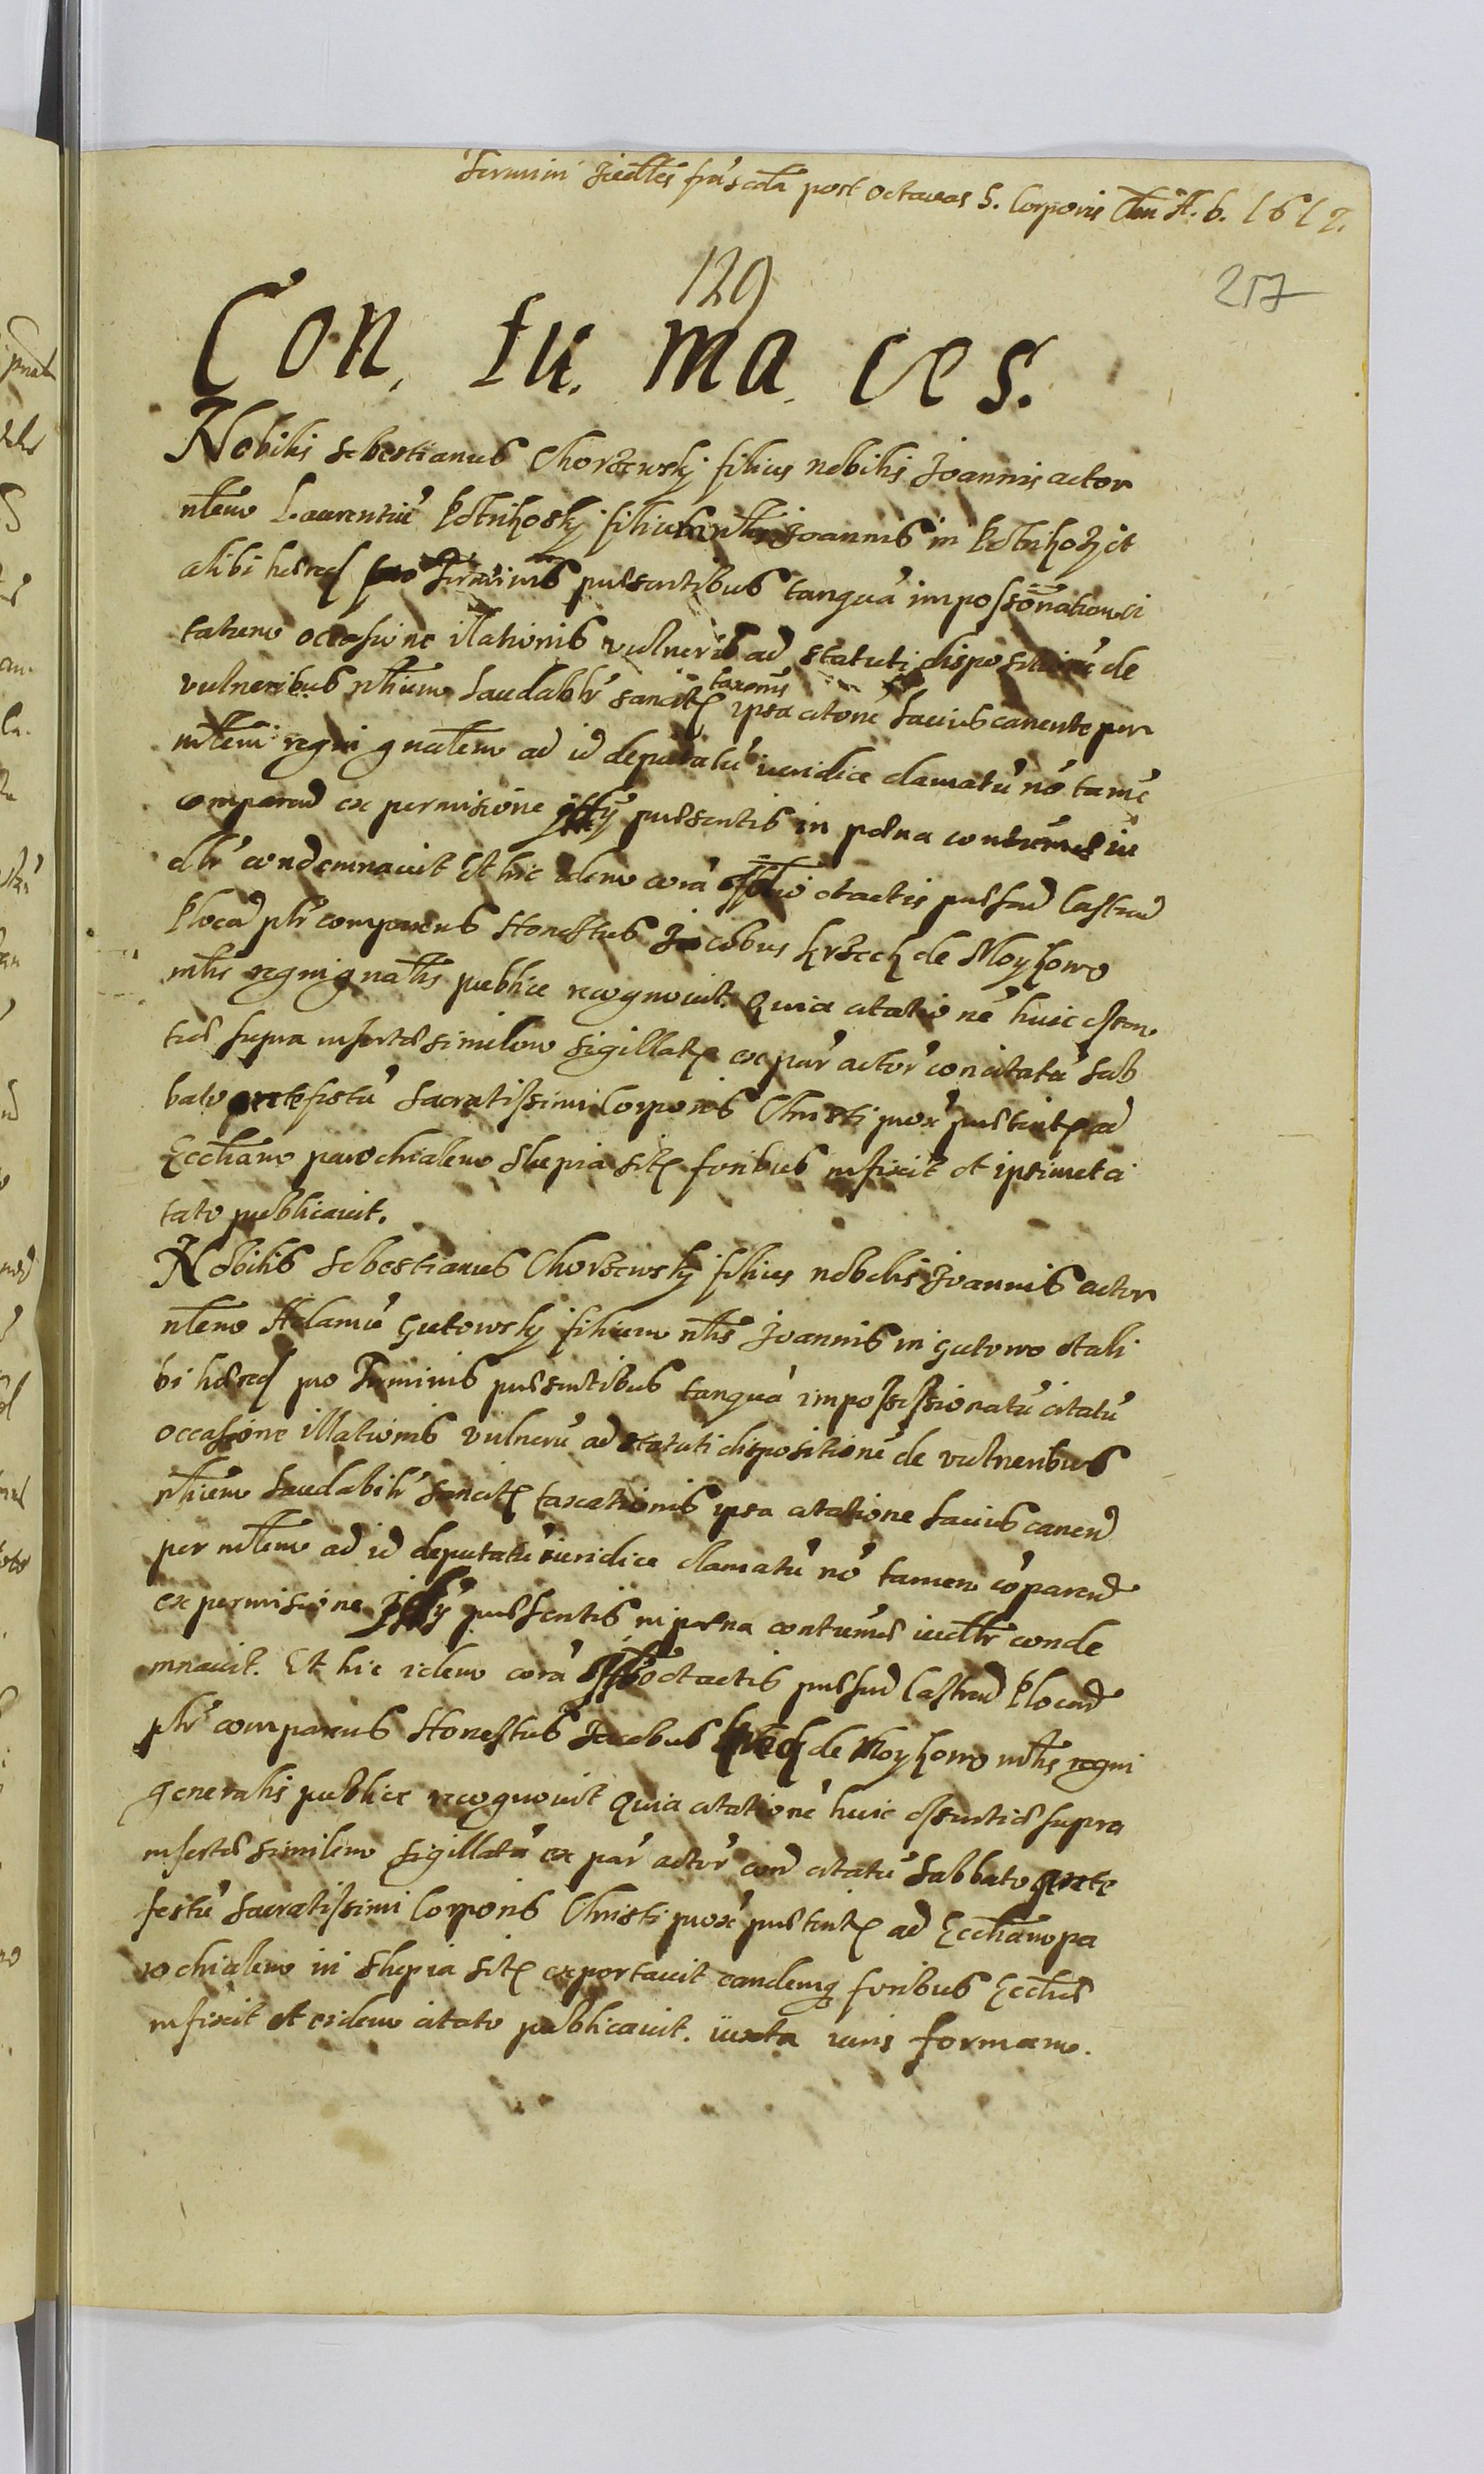 Termini post octavas S. Corporis A. D. 1617.
129
217
Con. tu. ma. ces.
Nobilis Sebestianus Chorzewskj filius nobilis Joannis actor
nlem Laurentiu' filium nlis Joannis in et
alibi hered pro Terminis presentibus tanqua' impossionatum ci
tatum occasione illationis vulneris ad statuti disposition' de
vulneribus laudabilr' sancit taxonis ipsa citatone latius canente per
mlem regni gnalem ad id deputatu' iuridice clamatu' no' tame'
comparend ex permisione presentis in pena contumes iu
dlr' condemnavit Et hic idem cora' offitio et actis presend Castrend
Plocen plr' comparens Honestus Jacobus krzech de Moykowo
mlis regni gnalis publice recognovit. Quia citatione' huic
supra inserte similem sigillat ex par' actor' con citatu' Sab
bato ante festu' Sacratissimi Corporis Christi prox' preterit ad
Eccliam parochialem Slupia sit foribus infixit et ipsimet ci
tato publicavit.
Nobilis Sebestianus Chorzewskj filius nobilis Joannis actor
nlem Adamu' Gutowskj filium nlis Joannis in Gutowo et ali
bi hered pro Terminis presentibus tanqua' impossessionatu' citatu'
occasione illationis vulneru' ad statuti disposition' de vulneribus
laudabilr' sancit taxationis ipsa citatione latius canend
per mlem ad id deputatu' iuridice clamatu' no' tamen co'parend
ex permisione presentis in pena contumes iudlr' conde
mnavit. Et hic idem cora' offitio et actis presend Castrend Plocend
plr' comparens Honestus Jacobus krzech de Moykowo mlis regni
generalis publice recognovit Quia citatione' huic supra
inserte similem sigillatu' ex par' actor' con citatu' Sabbato ante
festu' Sacratissimi Corporis Christi prox' preterit ad Eccliam pa
rochialem in Slupia sit exportavit eandemq foribus Ecclie
infixit et eidem citato publicavit. iuxta iuris formam.